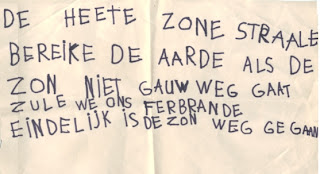 DE HEETE ZONE STRAALE
BEREIKE DE AARDE ALS DE
ZON NIET GAUW WEG GAAT
ZULE WE ONS FERBRANDE
EINDELIJK IS DE ZON WEG GEGAAN